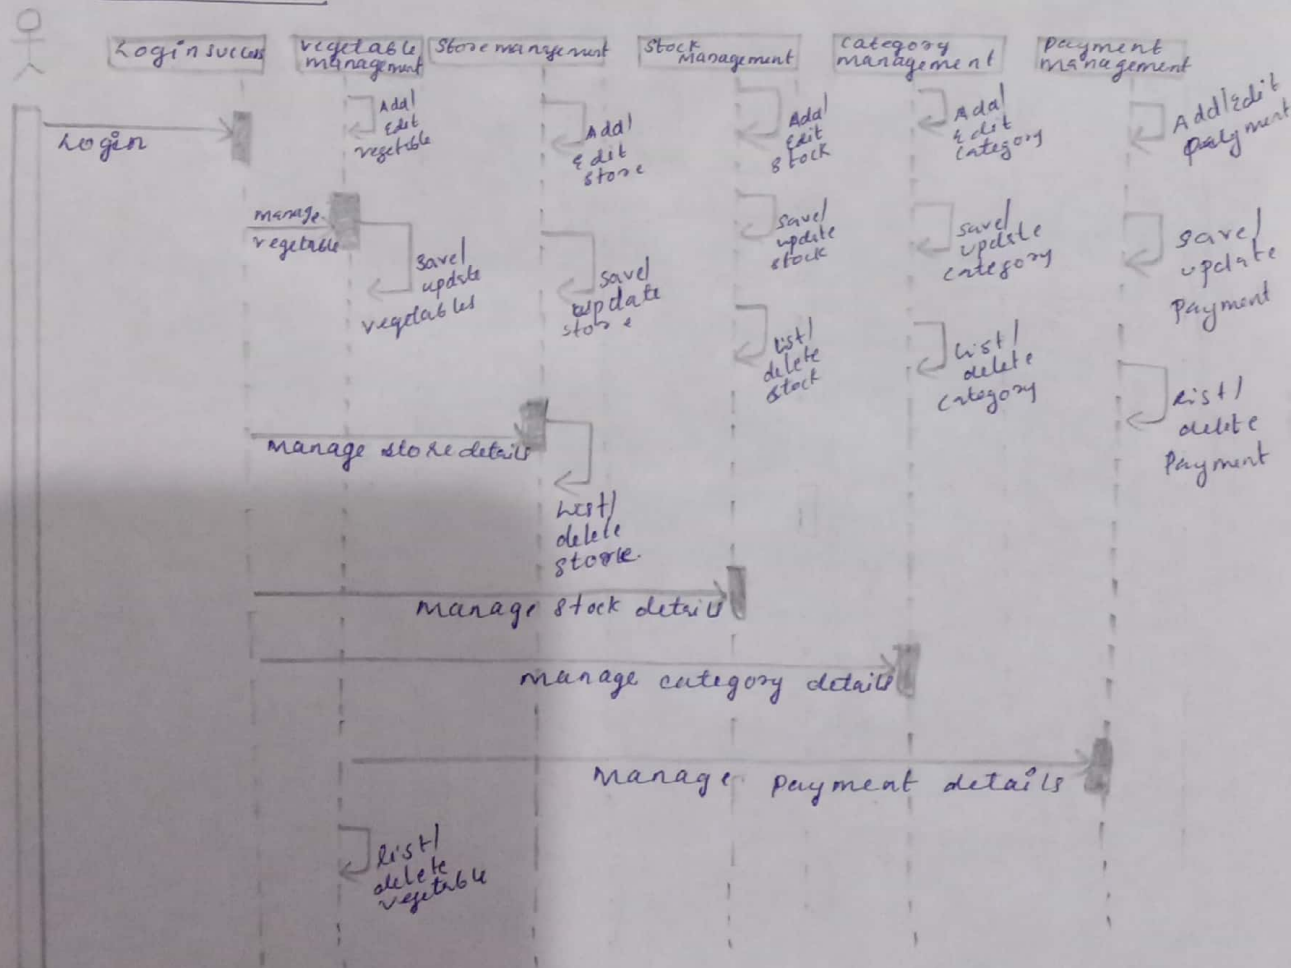 Login success
vegetable
management
Store management
Stock
Management
Category
management
Payment
management
Login
Add/
Edit
vegetable
Add/
Edit
store
Add/
Edit
stock
Add/
Edit
category
Add/Edit
payment
manage
vegetable
Save/
update
vegetables
Save/
update
store
Save/
update
stock
Save/
update
category
Save/
update
Payment
List/
delete
stock
List/
delete
category
List/
delete
Payment
Manage store details
List/
delete
store.
Manage stock details
Manage category details
Manage payment details
List/
delete
vegetable